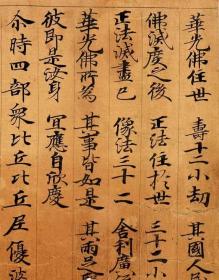 華光佛住世 壽十二小劫 其國人民
佛滅度之後 正法住於世 三十二小
正法滅盡已 像法三十二 舍利廣
華光佛所為 其事皆如是 其兩足
彼即是汝身 宜應自欣慶
尒時四部衆比丘比丘尼優婆